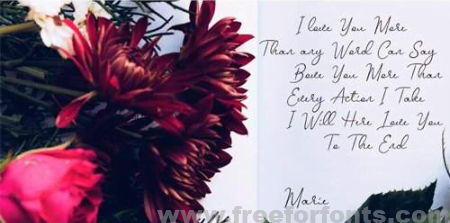 I love You More
Than any Word Can Say
Bove You More Than
Every Action I Take
I Will Here Love You
To The End
Marie
www.freeforfonts.com